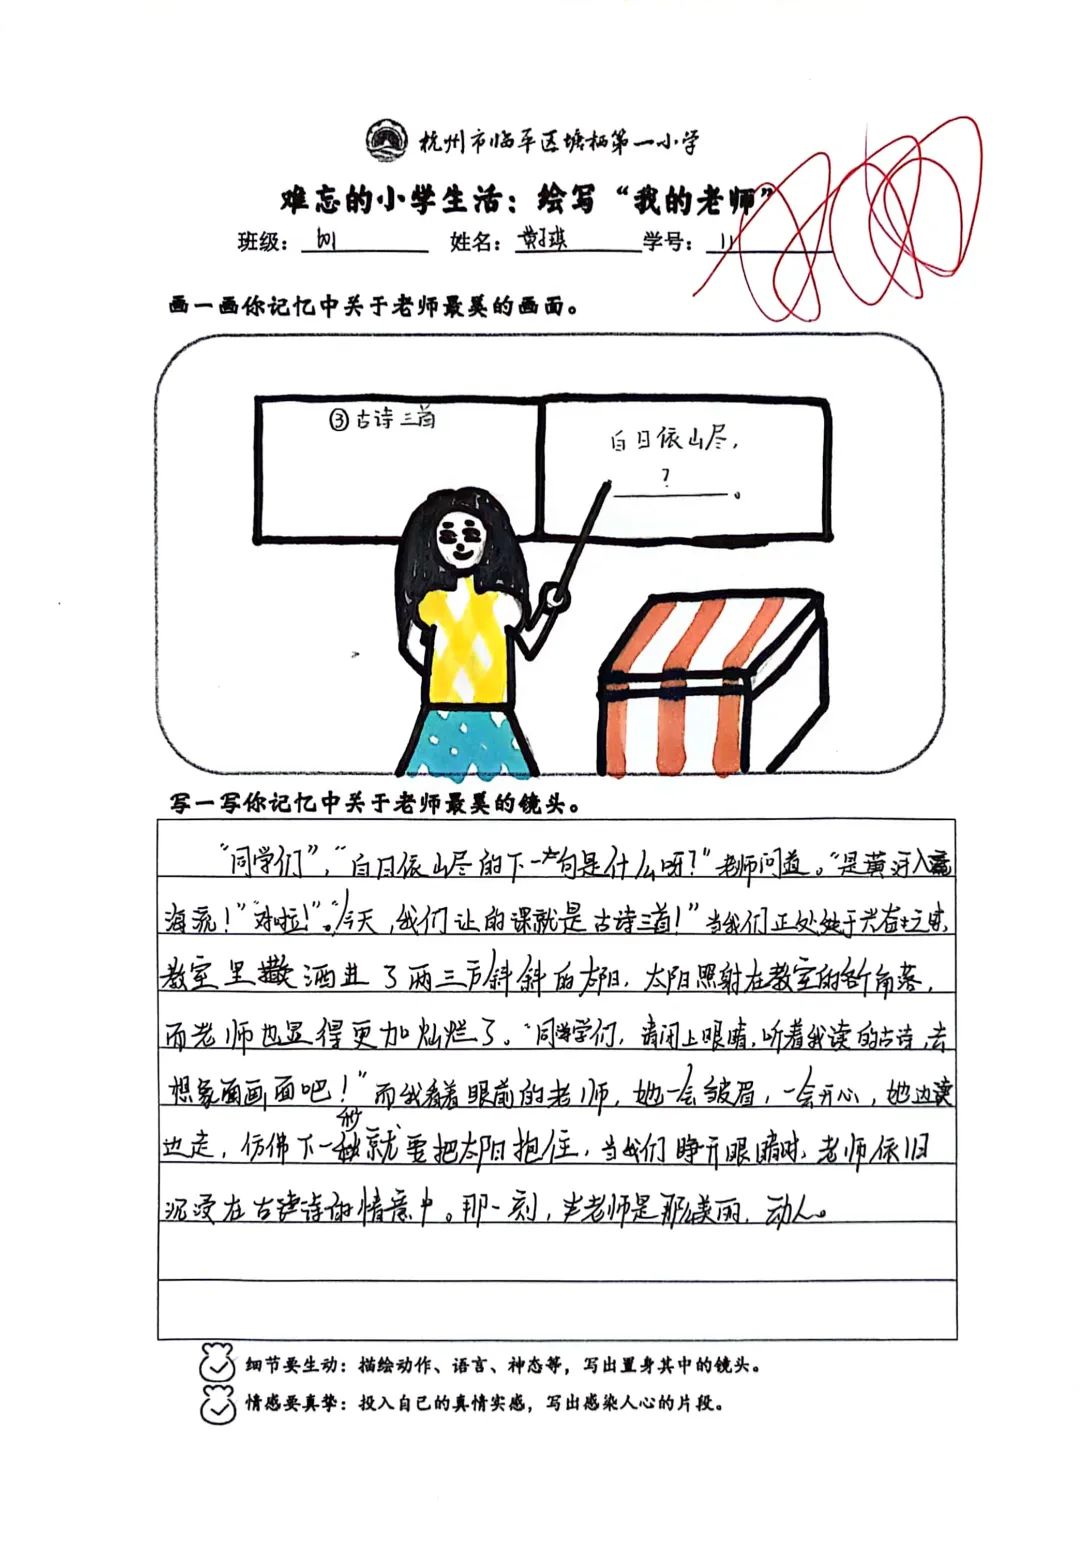 杭州市临平区塘栖第一小学
难忘的小学生活：绘写“我的老师”
班级：601 姓名：黄子琪 学号：11
画一画你记忆中关于老师最美的画面。
③古诗三首
白日依山尽，
？
。
写一写你记忆中关于老师最美的镜头。
“同学们”，“白日依山尽的下一句是什么呀？”老师问道。“是黄河入
海流！”“对啦！”。“今天，我们让的课就是古诗三首！”当我们正处于兴奋之时，
教室里洒进了两三方斜斜的太阳，太阳照射在教室的各个角落，
而老师也显得更加灿烂了。“同学们，请闭上眼睛，听着我读的古诗，去
想象画面吧！”而我看着眼前的老师，她一会皱眉，一会开心，她边读
边走，仿佛下一秒就要把太阳抱住，当我们睁开眼睛时，老师依旧
沉浸在古诗的情意中。那一刻，老师是那么美丽，动人。
细节要生动：描绘动作、语言、神态等，写出置身其中的镜头。
情感要真挚：投入自己的真情实感，写出感染人心的片段。